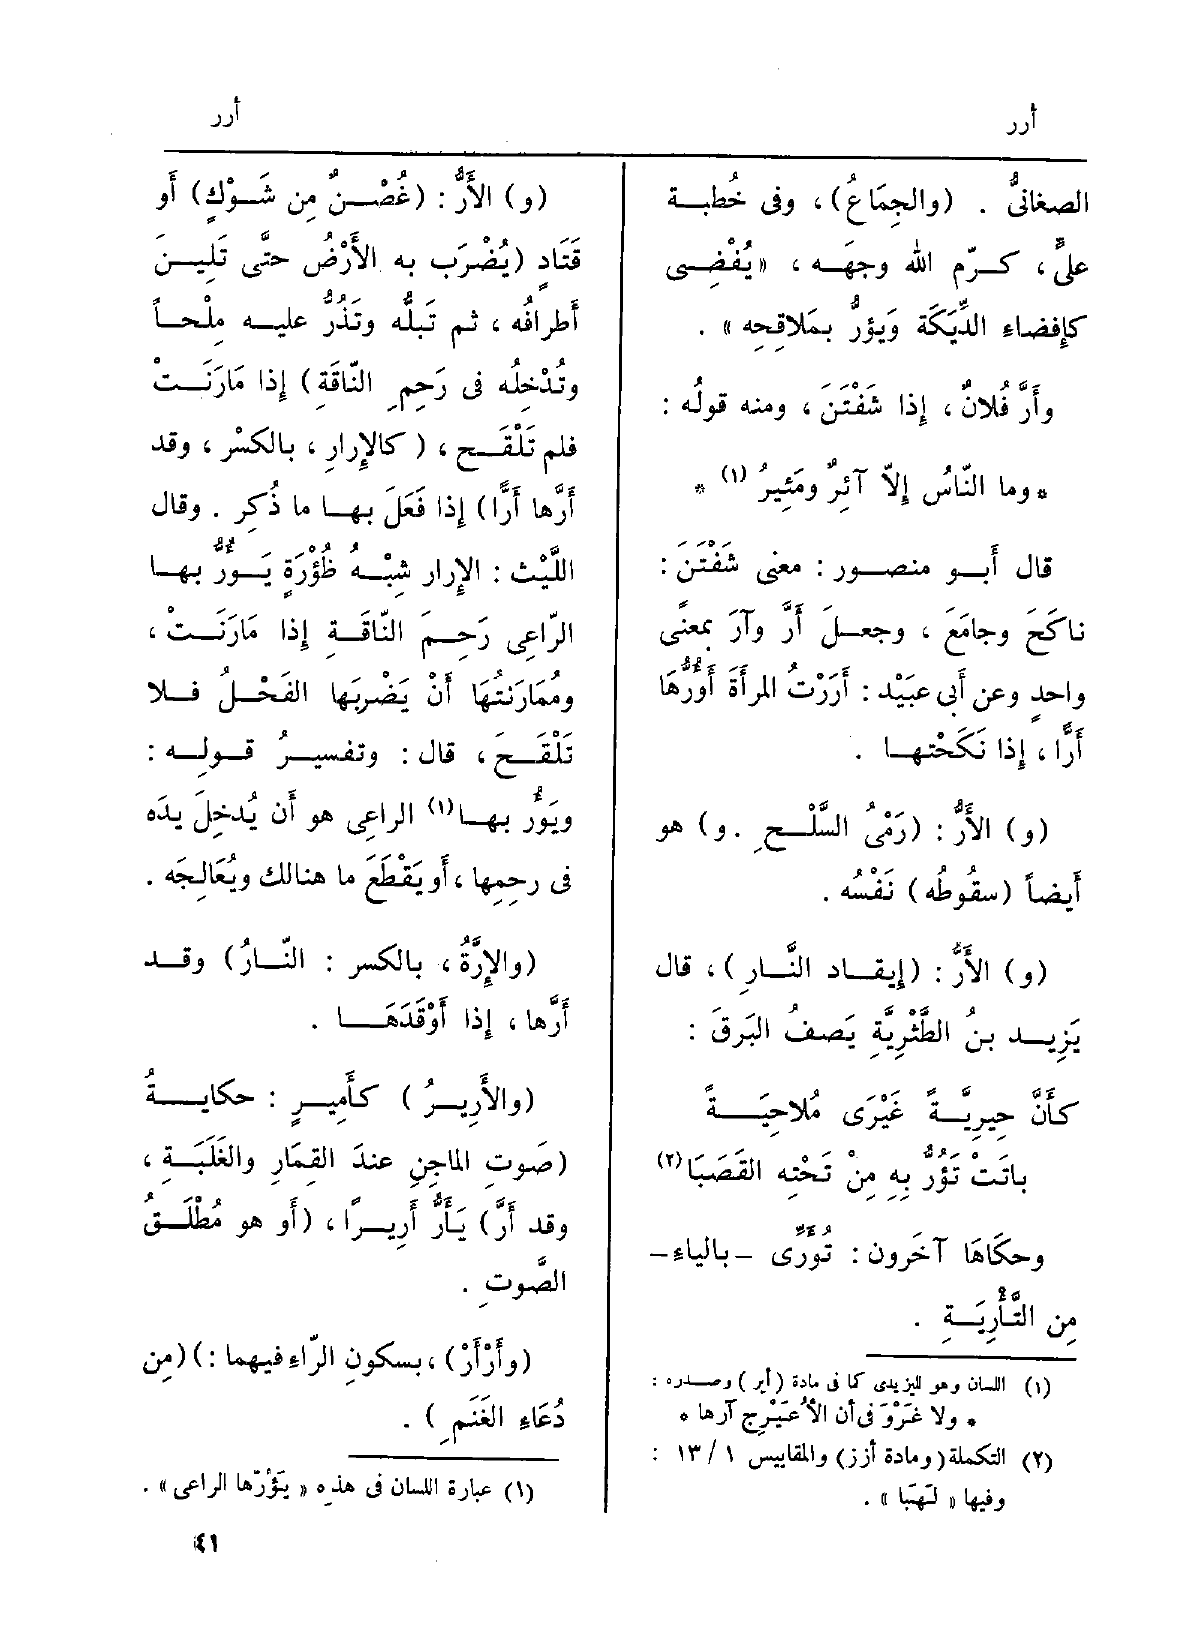 أرر
أرر
الصغانىُّ . (والجِمَاعُ) ، وفى خُطبة
علىٍّ ، كرّم الله وجهَه ، «يُفْضِى
كإفضاء الدِّيَكَة وَيؤرُّ بمَلاقِحِه» .
وأَرَّ فُلانٌ ، إذا شَفْتَنَ ، ومنه قولُه :
* وما النَّاسُ إلاّ آئِرٌ ومَئِيرُ (١) *
قال أَبو منصور : معنى شَفْتَنَ :
ناكَحَ وجامَعَ ، وجعلَ أَرَّ وآرَ بمعنًى
واحدٍ وعن أبى عبَيْد : أَرَرْتُ المرأَةَ أَؤُرُّهَا
أَرًّا ، إذا نَكَحْتها .
(و) الأَرُّ : (رَمْىُ السَّلْحِ . و) هو
أَيضاً (سقُوطُه) نَفْسُه .
(و) الأَرُّ : (إيقاد النَّارِ) ، قال
يَزِيد بنُ الطَّثْرِيَّةِ يَصفُ البَرقَ :
كأَنَّ حِيرِيَّةً غَيْرَى مُلاحِيَةً
باتَتْ تَؤُرُّ بِهِ مِنْ تَحْتِه القَصَبَا (٢)
وحكَاهَا آخَرون : تُؤَرِّى – بالياء –
مِن التَّأْرِيَةِ .
(١) اللسان وهو اليزيدى كما فى مادة (أير) وصدره :
* ولا غَرْوَ فى أن الأُعَيْرِج آرها *
(٢) التكملة (ومادة أزز) والمقاييس ١ / ١٣ :
وفيها « لَهَبَا » .
(و) الأَرُّ : (غُصْنٌ مِن شَوْكٍ) أَو
قَتَادٍ (يُضْرَب به الأَرْضُ حتَّى تَلِينَ
أَطرافُه ، ثم تَبلُّه وتَذُرُّ عليه مِلْحاً
وتُدْخِلُه فى رَحِمِ النَّاقَةِ) إذا مَارَنَتْ
فلم تَلْقَح ، (كالإرارِ ، بالكَسْر ، وقد
أَرَّها أَرًّا) إذا فَعَلَ بها ما ذُكِر . وقال
اللَّيْث : الإرار شِبْهُ ظُؤْرَةٍ يَؤُرُّ بها
الرّاعِى رَحِمَ النّاقَةِ إذا مَارَنَتْ ،
ومُمَارَنَتُهَا أَنْ يَضْرِبَها الفَحْلُ فلا
تَلْقَح ، قال : وتفسيرُ قوله :
ويَؤُرُّ بها (١) الراعِى هو أَن يُدخِلَ يدَه
فى رحِمِها ، أَو يَقْطَعَ ما هنالك ويُعَالِجَه .
(والإِرَّةُ ، بالكسر : النّارُ) وقد
أَرَّها ، إذا أَوْقَدَهَا .
(والأَرِيرُ) كأَمِيرٍ : حكايةُ
(صَوتِ الماجِنِ عندَ القِمَار والغَلَبَةِ ،
وقد أَرَّ) يَأَرُّ أَرِيرًا ، (أَو هو مُطْلَقُ
الصَّوتِ .
(وأَرْأَرْ) ، بسكونِ الرّاء فيهما :) (مِن
دُعَاءِ الغَنَمِ) .
(١) عبارة اللسان فى هذه « يَؤُرّها الراعى » .
٤١